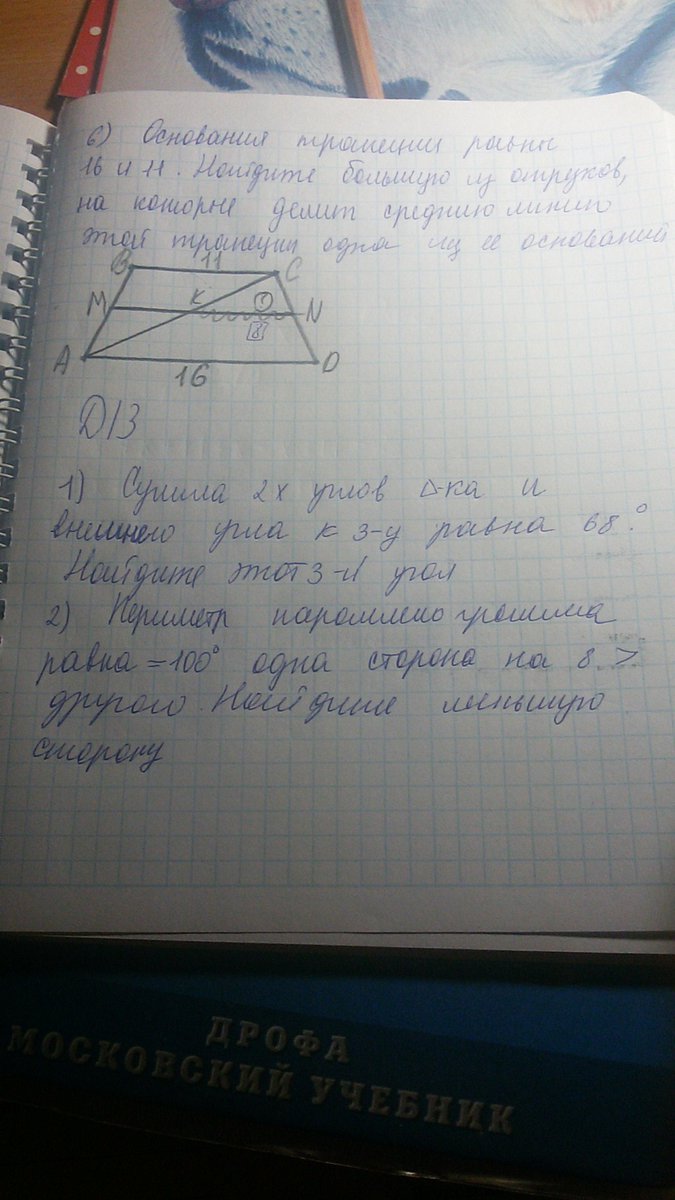 6) Основания трапеции равны
16 и 11. Найдите большую из отрезков,
на которые делит среднию линию
этой трапеции одна из ее оснований
B 11 C
M K ① N
8
A D
16
D/З
1) Сумма 2х углов Δ-ка и
внешнего угла к 3-у равна 68°.
Найдите этот 3-й угол
2) Периметр параллелограмма
равна =100° одна сторона на 8 >
другого. Найдите меньшую
сторону
ДРОФА
МОСКОВСКИЙ УЧЕБНИК